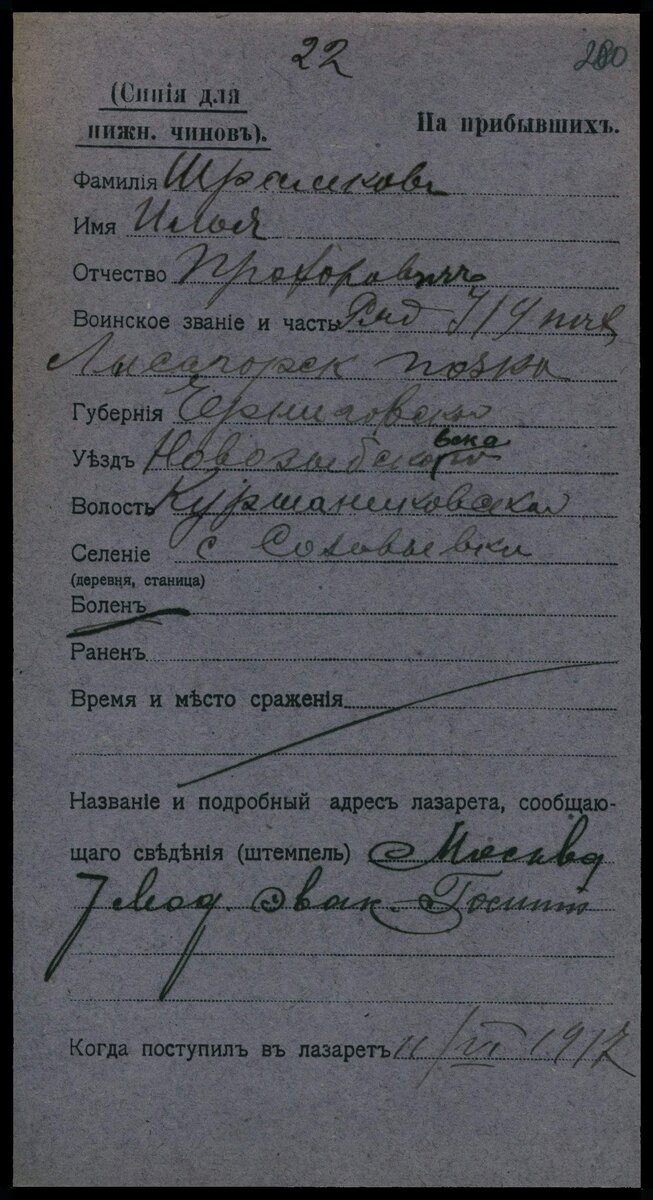 22
280
(Синія для
нижн. чиновъ).
На прибывшихъ.
Фамилія Шрамковъ
Имя Илья
Отчество Прохоровичъ
Воинское званіе и часть Ряд 719 пѣх
Лысагорск полка
Губернія Черниговская
Уѣздъ Новозыбковска
Волость Куршановская
Селеніе с Соловьевки
(деревня, станица)
Боленъ
Раненъ
Время и мѣсто сраженія
Названіе и подробный адресъ лазарета, сообщаю-
щаго свѣдѣнія (штемпель) Москва
7 Эвак. Госпит
Когда поступилъ въ лазаретъ 11/VI 1917